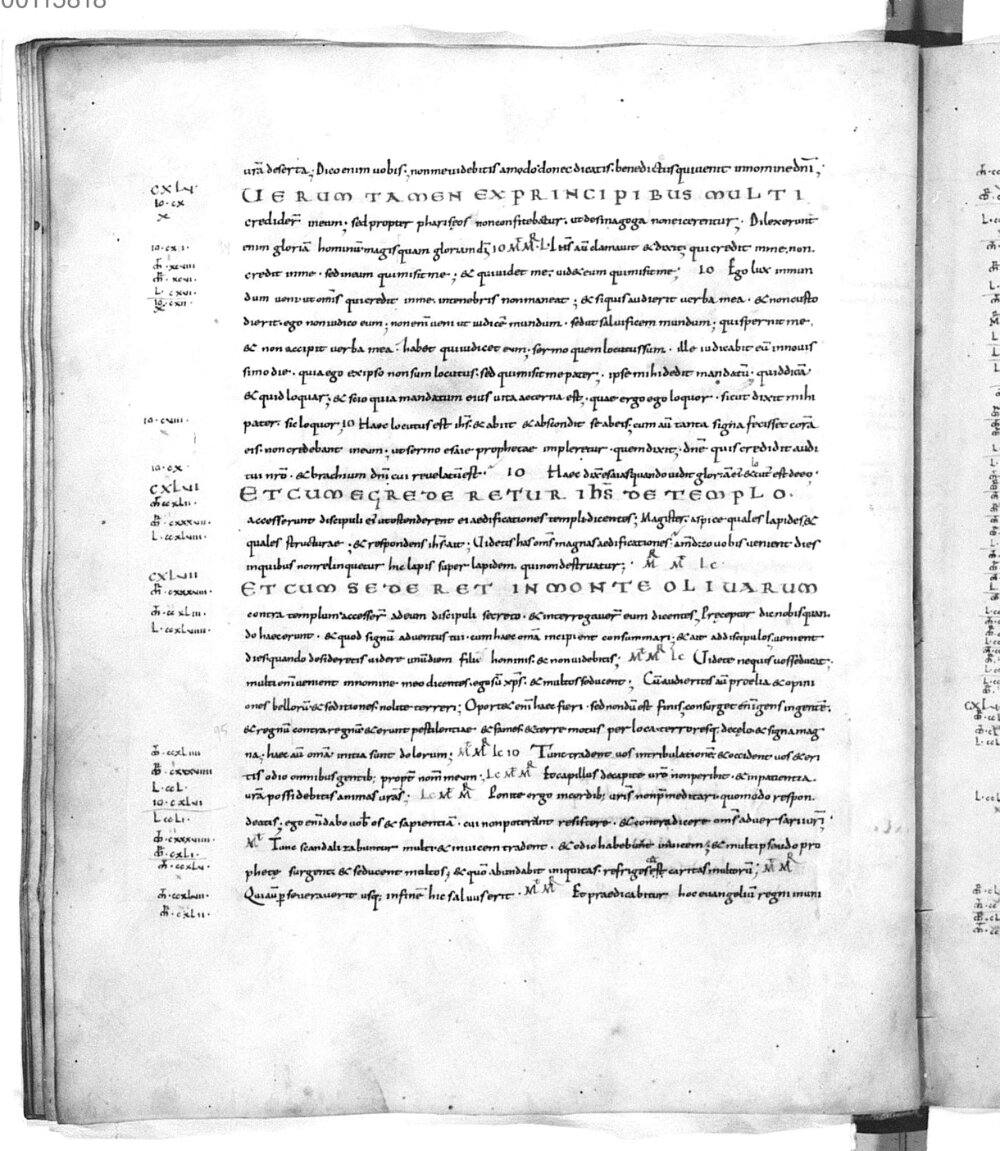 00115818
urā deserta; Dico enim uobis; non me uidebitis amodo donec dicatis. benedictus qui uenit in nomine dn̄i;
CXLV
UERUM TAMEN EX PRINCIPIBUS MULTI
io. cx
x
crediderˉ in eum; sed propter phariseos non confitebatur. ut de sinagoga non eicerentur; Dilexerunt
io. cxi.
enim gloriā hominum magis quam gloriam dī; IO M̄ M̄ L ihs aū clamauit & dixit; qui credit in me. non
m̄. xcviii
credit in me. sed in eum qui misit me; & qui uidet me; uid& eum qui misit me; IO Ego lux in mun
m̄. xcvi.
L. cxvi.
dum ueni ut omīs qui credit in me. in tenebris non maneat; & si quis audierit uerba mea. & non custo
io. cxii.
x
dierit. ego non iudico eum; non enī ueni ut iudicē mundum. sed ut saluificem mundum; qui spernit me.
& non accipit uerba mea. hab& qui iudicet eum; sermo quem locutus sum. ille iudicabit eū in nouis
simo die. quia ego ex ipso non sum locutus. sed qui misit me pater; ipse mihi dedit mandatū. quid dicā
& quid loquar; & scio quia mandatum eius uita aeterna est; quae ergo ego loquor. sicut dixit mihi
io. cviii.
pater. sic loquor; IO Haec locutus est ihs. & abiit & abscondit se ab eis; cum aū tanta signa fecisset corā
eis. non credebant in eum; ut sermo esaie prophetae impleretur. quem dixit; dn̄e quis credidit audi
io. cx.
tui nrō. & brachium dn̄i cui reuelatū est. IO Haec dixit esaias quando uidit gloriā ei & locutus est de eo.
CXLVI
ET CUM EGREDERETUR IHS DE TEMPLO.
m̄. ccxlii.
accesserunt discipuli ei ut ostenderent ei aedificationes templi dicentes; Magister. aspice quales lapides &
m̄. cxxxvii.
L. ccxlviii.
quales structurae; & respondens ihs ait; Uidetis has omīs magnas aedificationes. amen dico uobis uenient dies
in quibus non relinquetur hic lapis super lapidem. qui non destruatur; M̄ M̄ Lc
CXLVII
ET CUM SEDERET IN MONTE OLIUARUM
m̄. cxxxviii.
m̄. ccxliii.
contra templum accesserˉ ad eum discipuli secreto. & interrogauerˉ eum dicentes; Preceptor dic nobis quan
L. ccxlviiii.
do haec erunt. & quod signū aduentus tui. cum haec omā incipient consummari; & ait ad discipulos; uenient
dies quando desideretis uidere unū diem filii hominis. & non uidebitis; M̄ M̄ Lc Uidete ne quis uos seducat;
multi enī uenient in nomine meo dicentes. ego sū xp̄s. & multos seducent; Cū audieritis aū proelia & opini
ones bellorū & seditiones. nolite terreri; Oport& enī haec fieri. sed nondū est finis; consurget enī gens in gentē.
& regnū contra regnū & erunt pestilentiae & fames & terre motus per loca. terroresq; de celo & signa mag
m̄. ccxliiii
na; haec aū omā initia sunt dolorum; M̄ M̄ Lc IO Tunc tradent uos in tribulationē & occident uos & eri
m̄. cxxxviiii
tis odio omnibus gentib; propt nom meum; Lc M̄ M̄ Et capillos de capite urō non peribit. & in patientia
L. ccL.
urā possidebitis animas urās; Lc M̄ M̄ Ponite ergo in cordib; uris non p̄meditari quomodo respon.
io. cxlvi
L. ccLi.
deatis; ego enī dabo uob os & sapientiā. cui non poterānt resistere. & contradicere omīs aduersarii urī;
m̄. cxxxviiii.
m̄ Tunc scandalizabuntur multi & inuicem tradent. & odio habebunt inuicem; & multi pseudo pro
m̄. cxli.
m̄. ccxlv.
phetę surgent & seducent multos; & quō abundabit iniquitas. refrigescet caritas multorū; M̄ M̄
m̄. ccxlvi.
Qui aū pseuerauerit usq; in finē hic saluus erit. M̄ M̄ Et praedicabitur hoc euangeliū regni in uni
m̄. cxlii.